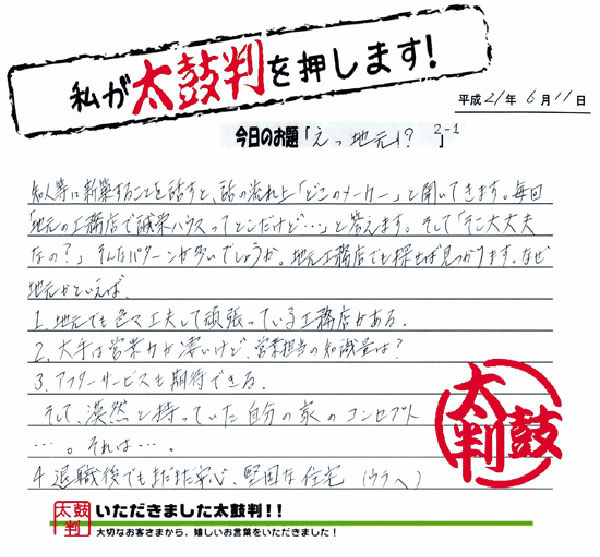 私が太鼓判を押します!
平成21年6月11日
今日のお題『えっ地元!? 2-1』
知人等に新築することを話すと、話の流れ上「どこのメーカー」と聞いてきます。毎回
「地元の工務店で誠栄ハウスってとこだけど…」と答えます。そして「そこ大丈夫
なの?」そんなパターンが多いでしょうか。地元工務店でも探せば見つかります。なぜ
地元かといえば、
1、地元でも色々工夫して頑張っている工務店がある。
2、大手は営業力が凄いけど、営業担当の知識量は?
3、アフターサービスも期待できる。
そして、漠然と持っていた自分の家のコンセプト
…。それは…。
4、退職後でもまだまだ安心、堅固な住宅 (ウラへ)
太鼓判
太鼓判
いただきました太鼓判!!
大切なお客さまから。嬉しいお言葉をいただきました!